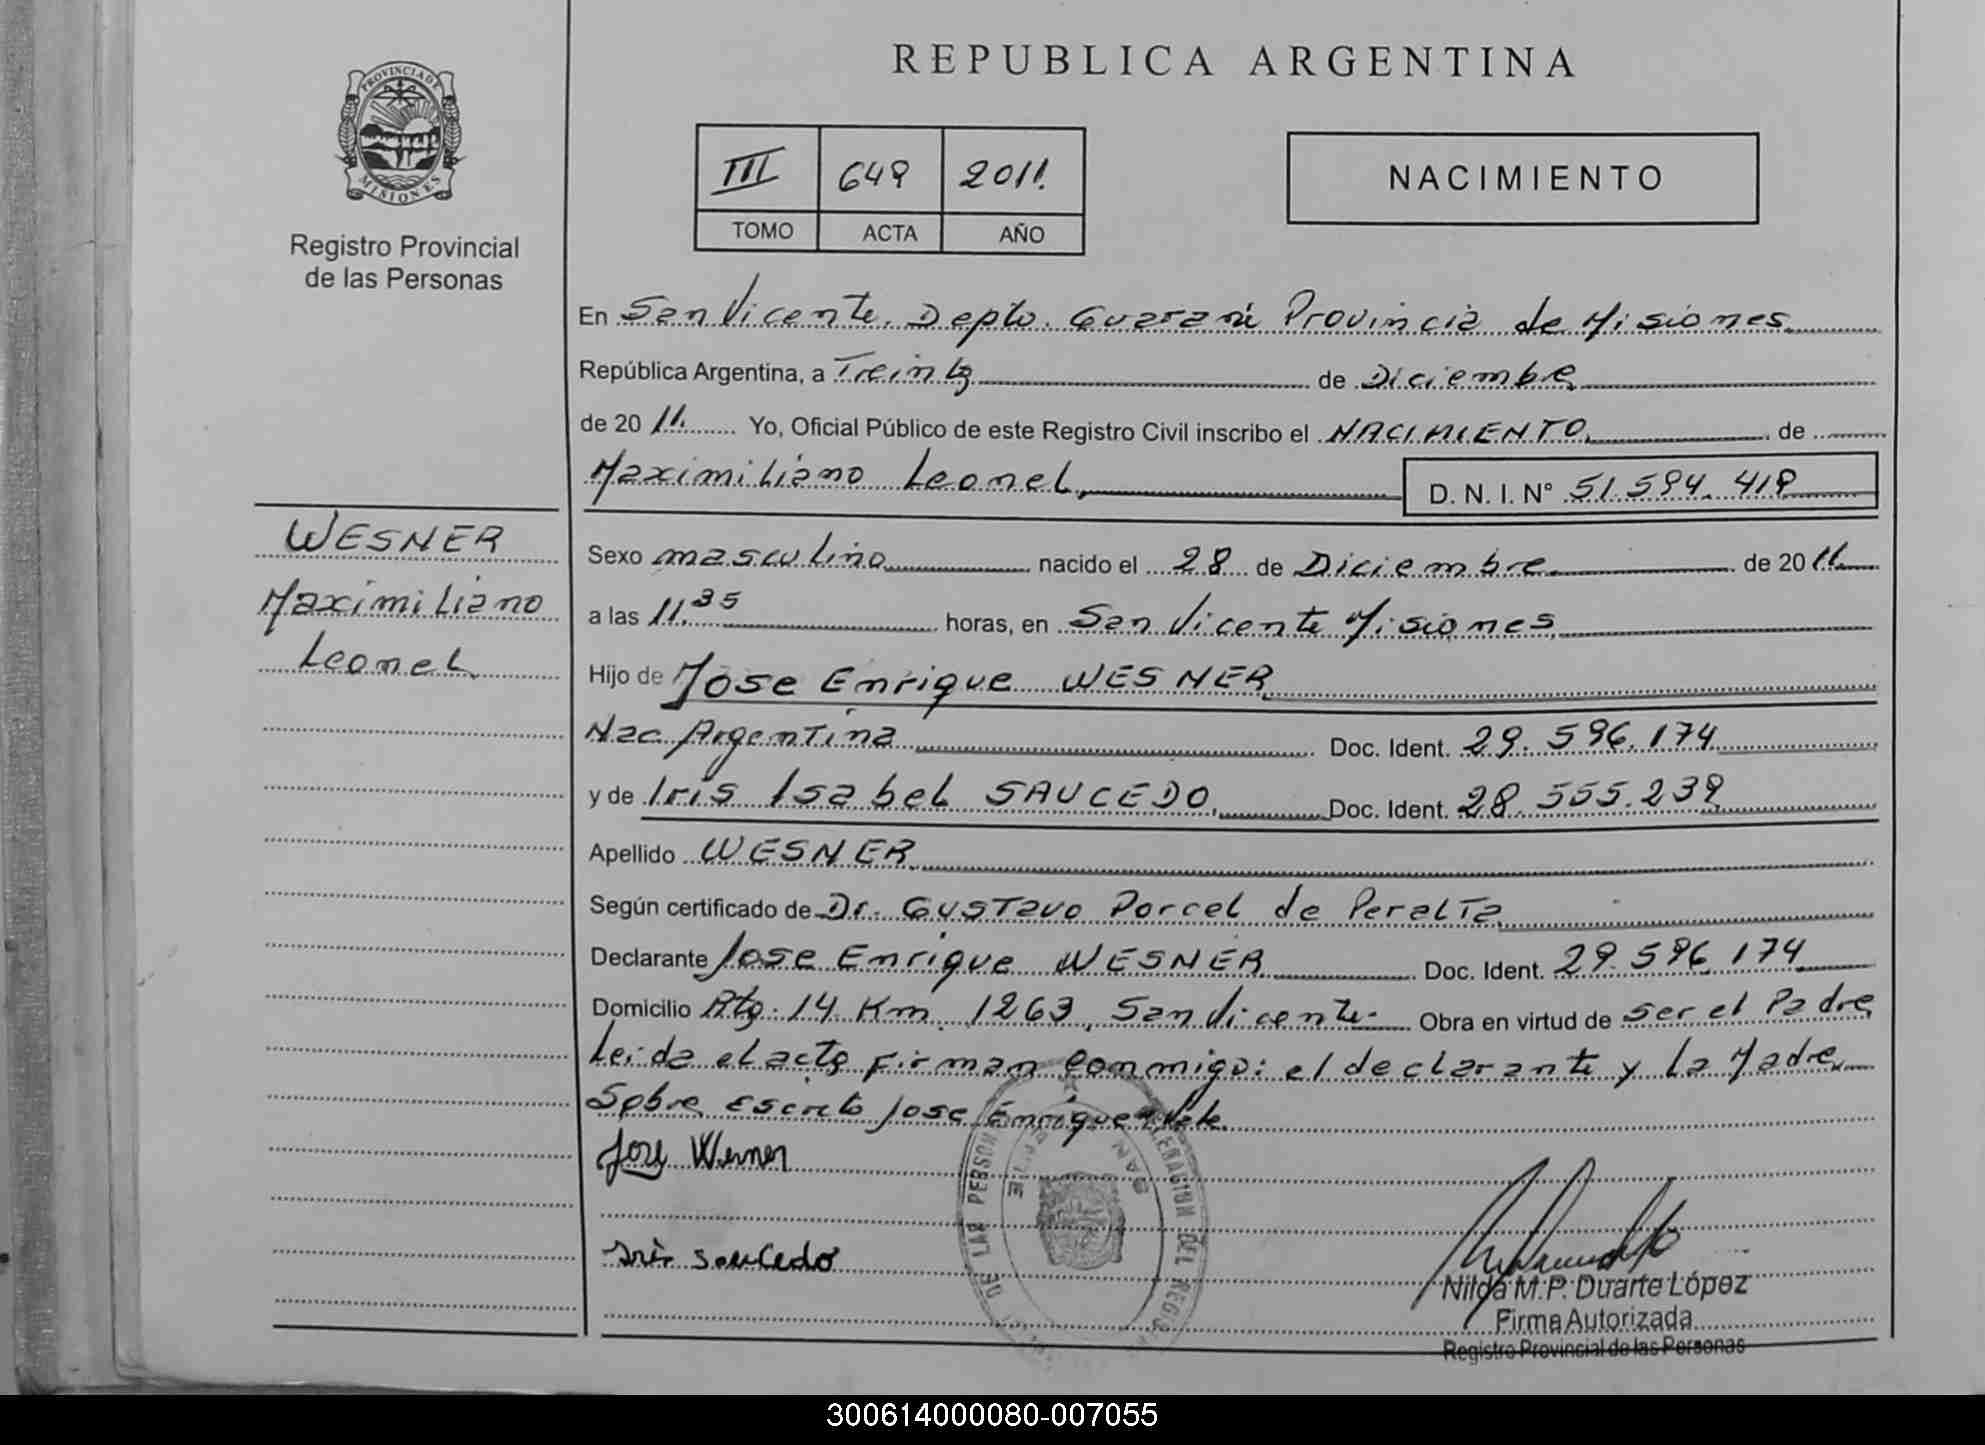 REPUBLICA ARGENTINA
PROVINCIA DE
MISIONES
Registro Provincial
de las Personas
III 649 2011.
TOMO ACTA AÑO
NACIMIENTO
En San Vicente. Depto. Guaraní Provincia de Misiones
República Argentina, a Treinta de Diciembre
de 20 11. Yo, Oficial Público de este Registro Civil inscribo el NACIMIENTO de
Maximiliano Leonel, D. N. I. N° 51.594.419
WESNER
Maximiliano
Leonel
Sexo masculino nacido el 28 de Diciembre de 20 11.
a las 11.35 horas, en San Vicente Misiones
Hijo de Jose Enrique WESNER
Nac. Argentina Doc. Ident. 29.596.174
y de Iris Isabel SAUCEDO, Doc. Ident. 28.555.239
Apellido WESNER
Según certificado de Dr. Gustavo Porcel de Peralta
Declarante Jose Enrique WESNER Doc. Ident. 29.596.174
Domicilio Rta. 14 Km. 1263, San Vicente. Obra en virtud de ser el Padre
Leida el acta firman conmigo: el declarante y la Madre
Sobre escrito Jose Enrique Vale.
Jose Wesner
Iris Saucedo
DE LAS PERSON
SAN
DEL REGIS
Nilda M.P. Duarte López
Firma Autorizada
Registro Provincial de las Personas
300614000080-007055